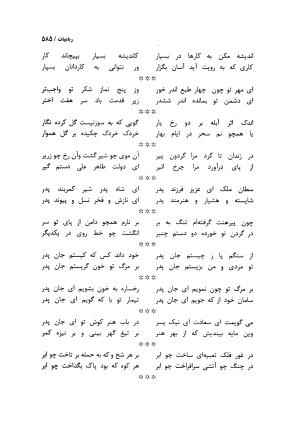 رباعیات / ۵۸۵
اندیشه مکن به کارها در بسیار کاندیشه بسیار بپیچاند کار
کاری که به رویت آید آسان بگزار ور نتوانی به کاردانان بسپار
***
ای مهر تو چون چهار طبع اندر خور وز پنج نماز شکر تو واجب‌تر
ای دشمن تو بمانده اندر ششدر زیر قدمت باد سر هفت اختر
***
اندک اثر آبله بر دو رخ یار گویی که به سوزنیست گل کرده نگار
یا همچو نم سحر در ایام بهار خردک خردک چکیده بر گل هموار
***
در زندان تا کرد مرا گردون پیر آن موی چو شیر گشت وآن رخ چو زریر
از پای درآورد مرا چرخ اثیر ای دولت طاهر علی دستم گیر
***
سلطان ملک ای عزیز فرزند پدر ای شاه پدر شیر کمربند پدر
شایسته و هشیار و هنرمند پدر ای نازش و فخر نسل و پیوند پدر
***
چون پیرهنت گرفته‌ام تنگ به بر بر نارم همچو دامن از پای تو سر
در گردن تو خورده دو دستم چنبر انگشت چو خط روی در یکدیگر
***
از سنگم یا ز چیستم جان پدر خود داند کس که کیستم جان پدر
تو مردی و من بزیستم جان پدر بر مرگ تو خون گریستم جان پدر
***
بر مرگ تو چون نمویم ای جان پدر رخساره به خون بشویم ای جان پدر
سامان خود از که جویم ای جان پدر تیمار تو با که گویم ای جان پدر
***
می گویمت ای سعادت ای نیک پسر در باب هنر کوش تو ای جان پدر
وین مایه بیندیش که از بهر هنر بر تیغ گهر بینی و بر نیزه کمر
***
در غور فلک تعبیه‌ای ساخت چو ابر بر هر شخ و که به حمله بر تاخت چو ابر
در چنگ چو آتشی سرافراخت چو ابر هر کوه که بود پاک بگداخت چو ابر
***